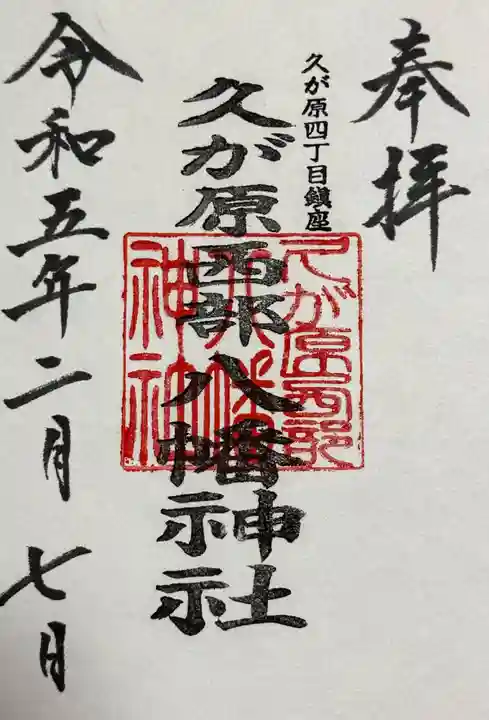 奉拝
久が原四丁目鎮座
久が原西部八幡神社
久が原西部
八幡
神社
令和五年二月七日